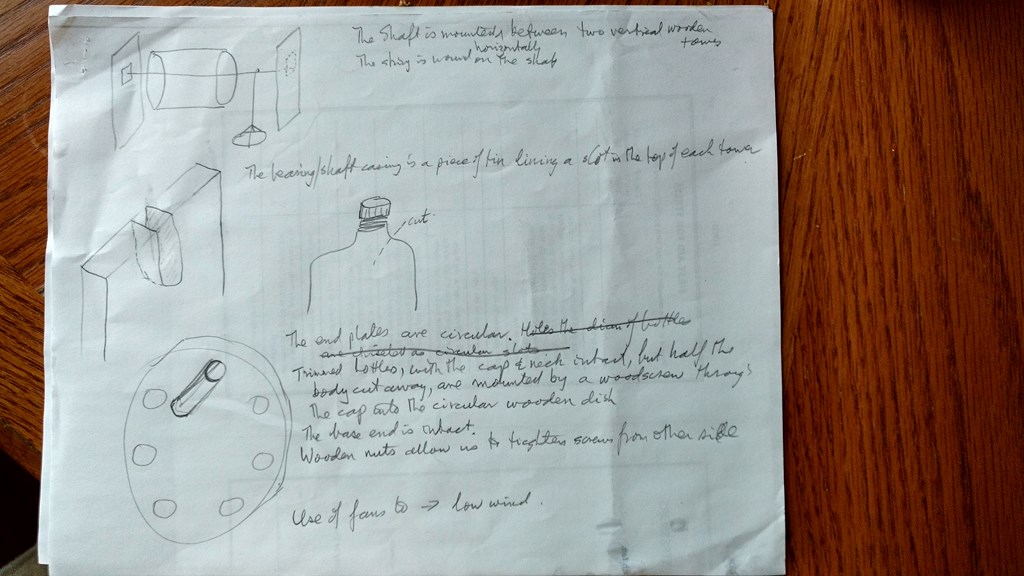 The Shaft is mounted between two vertical wooden
towers
horizontally
The string is wound on the shaft
The bearing/shaft casing is a piece of tin lining a slot in the top of each tower
cut
The end plates are circular. Holes the diam of bottles
are circular slots
Trimmed bottles, with the cap & neck intact, but half the
body cut away, are mounted by a woodscrew through
the cap onto the circular wooden disk
The base end is intact.
Wooden nuts allow us to tighten screws from other side
Use of fans to → low wind.